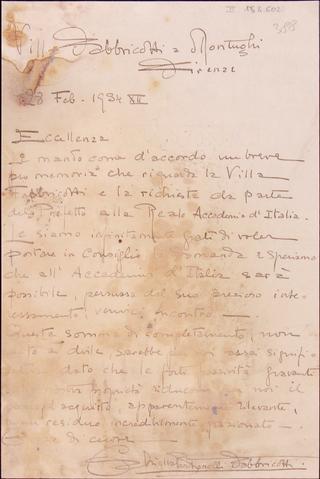 Villa Fabbricotti a Montughi
Firenze
28 Feb. 1934 XII
Eccellenza
Le mando come d'accordo un breve
pro memoria che riguarda la Villa
Fabbricotti e la richiesta da parte
del Progetto alla Reale Accademia d'Italia.
Le siamo infinitamente grati di voler
portare in Consiglio la domanda e speriamo
che all'Accademia d'Italia sarà
possibile, persuasa dal suo prezioso inte-
ressamento, venirci incontro —
Questa somma di completamento, non
a dirle sarebbe noi assai signifi-
dato che le forti passività gravanti
proprietà riducono a noi il
d'acquisto apparentemente rilevante,
un residuo incredibilmente
di cuore
Fabbricotti.